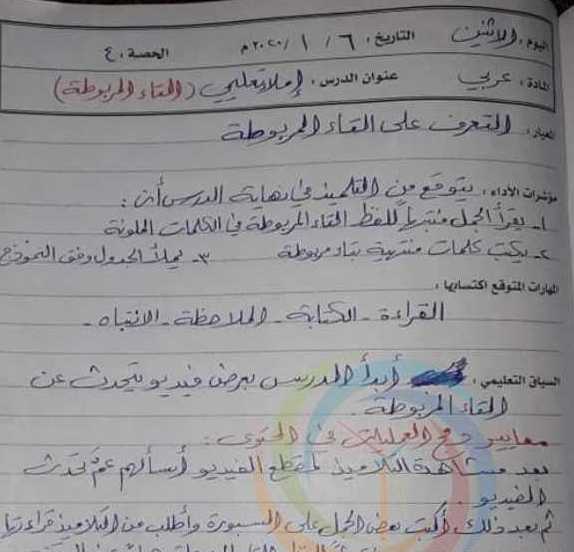 اليوم : الاثنين التاريخ : ٦ / ١ / ٢٠٢٠م الحصة : ٤
المادة : عربي عنوان الدرس : إملاء تعليمي ( التاء المربوطة )
المعيار : التعرف على التاء المربوطة
مؤشرات الأداء : يتوقع من التلميذ في نهاية الدرس أن :
١- يقرأ الجمل منتبهاً للفظ التاء المربوطة في الكلمات الملونة
٢- يكتب كلمات منتهية بتاء مربوطة ٣- يملأ الجدول وفق النموذج
المهارات المتوقع اكتسابها :
القراءة - الكتابة - الملاحظة - الانتباه -
السياق التعليمي : أبدأ الدرس بعرض فيديو يتحدث عن
التاء المربوطة .
معايير دمج العمليات في المحتوى :
بعد مشاهدة التلاميذ لمقطع الفيديو أسألهم عمّ تحدث
الفيديو .
ثم بعد ذلك أكتب بعض الجمل على السبورة وأطلب من التلاميذ قراءتها